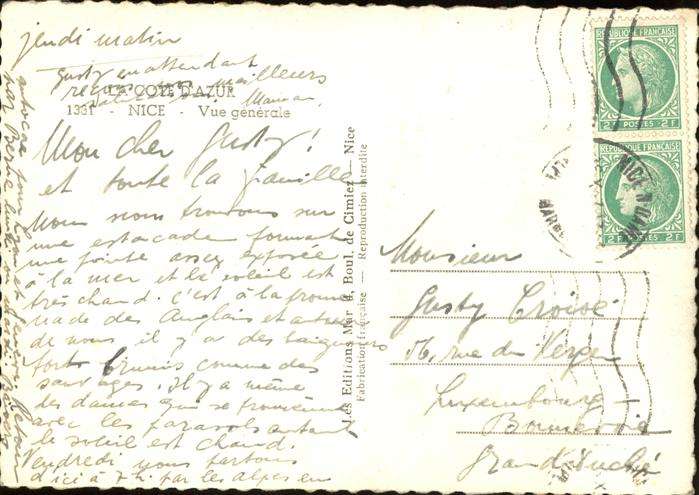 jeudi matin
Gusty en attendant
meilleurs
Maman
LA COTE D'AZUR
1381 - NICE - Vue générale
Mon cher Gusty!
et toute la famille
Nous nous trouvons sur
une estacade formant
une pointe assez exposée
à la mer et le soleil est
très chaud. C'est à la prome
nade des Anglais et autour
de nous, il y a des baigneurs
forts brunis comme des
sauvages. Il y a même
des dames qui se promènent
avec les parasols autant
le soleil est chaud.
Vendredi nous partons
d'ici à 7 h. par les Alpes en
autocar pour
Les Editions Mar 9, Boul. de Cimiez - Nice
Fabrication française - Reproduction interdite
REPUBLIQUE FRANÇAISE
2F POSTES 2F
REPUBLIQUE FRANÇAISE
2F POSTES 2F
NICE
Monsieur
Gusty Croisé
rue du Verger
Luxembourg-
Bonnevoie
Grand Duché